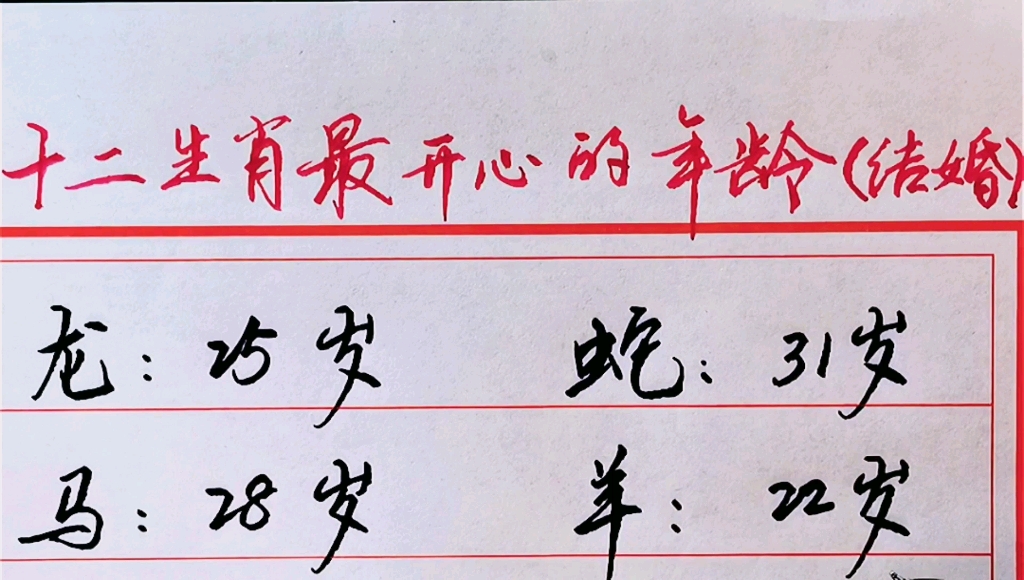 十二生肖最开心的年龄(结婚)
龙：25岁 蛇：31岁
马：28岁 羊：22岁